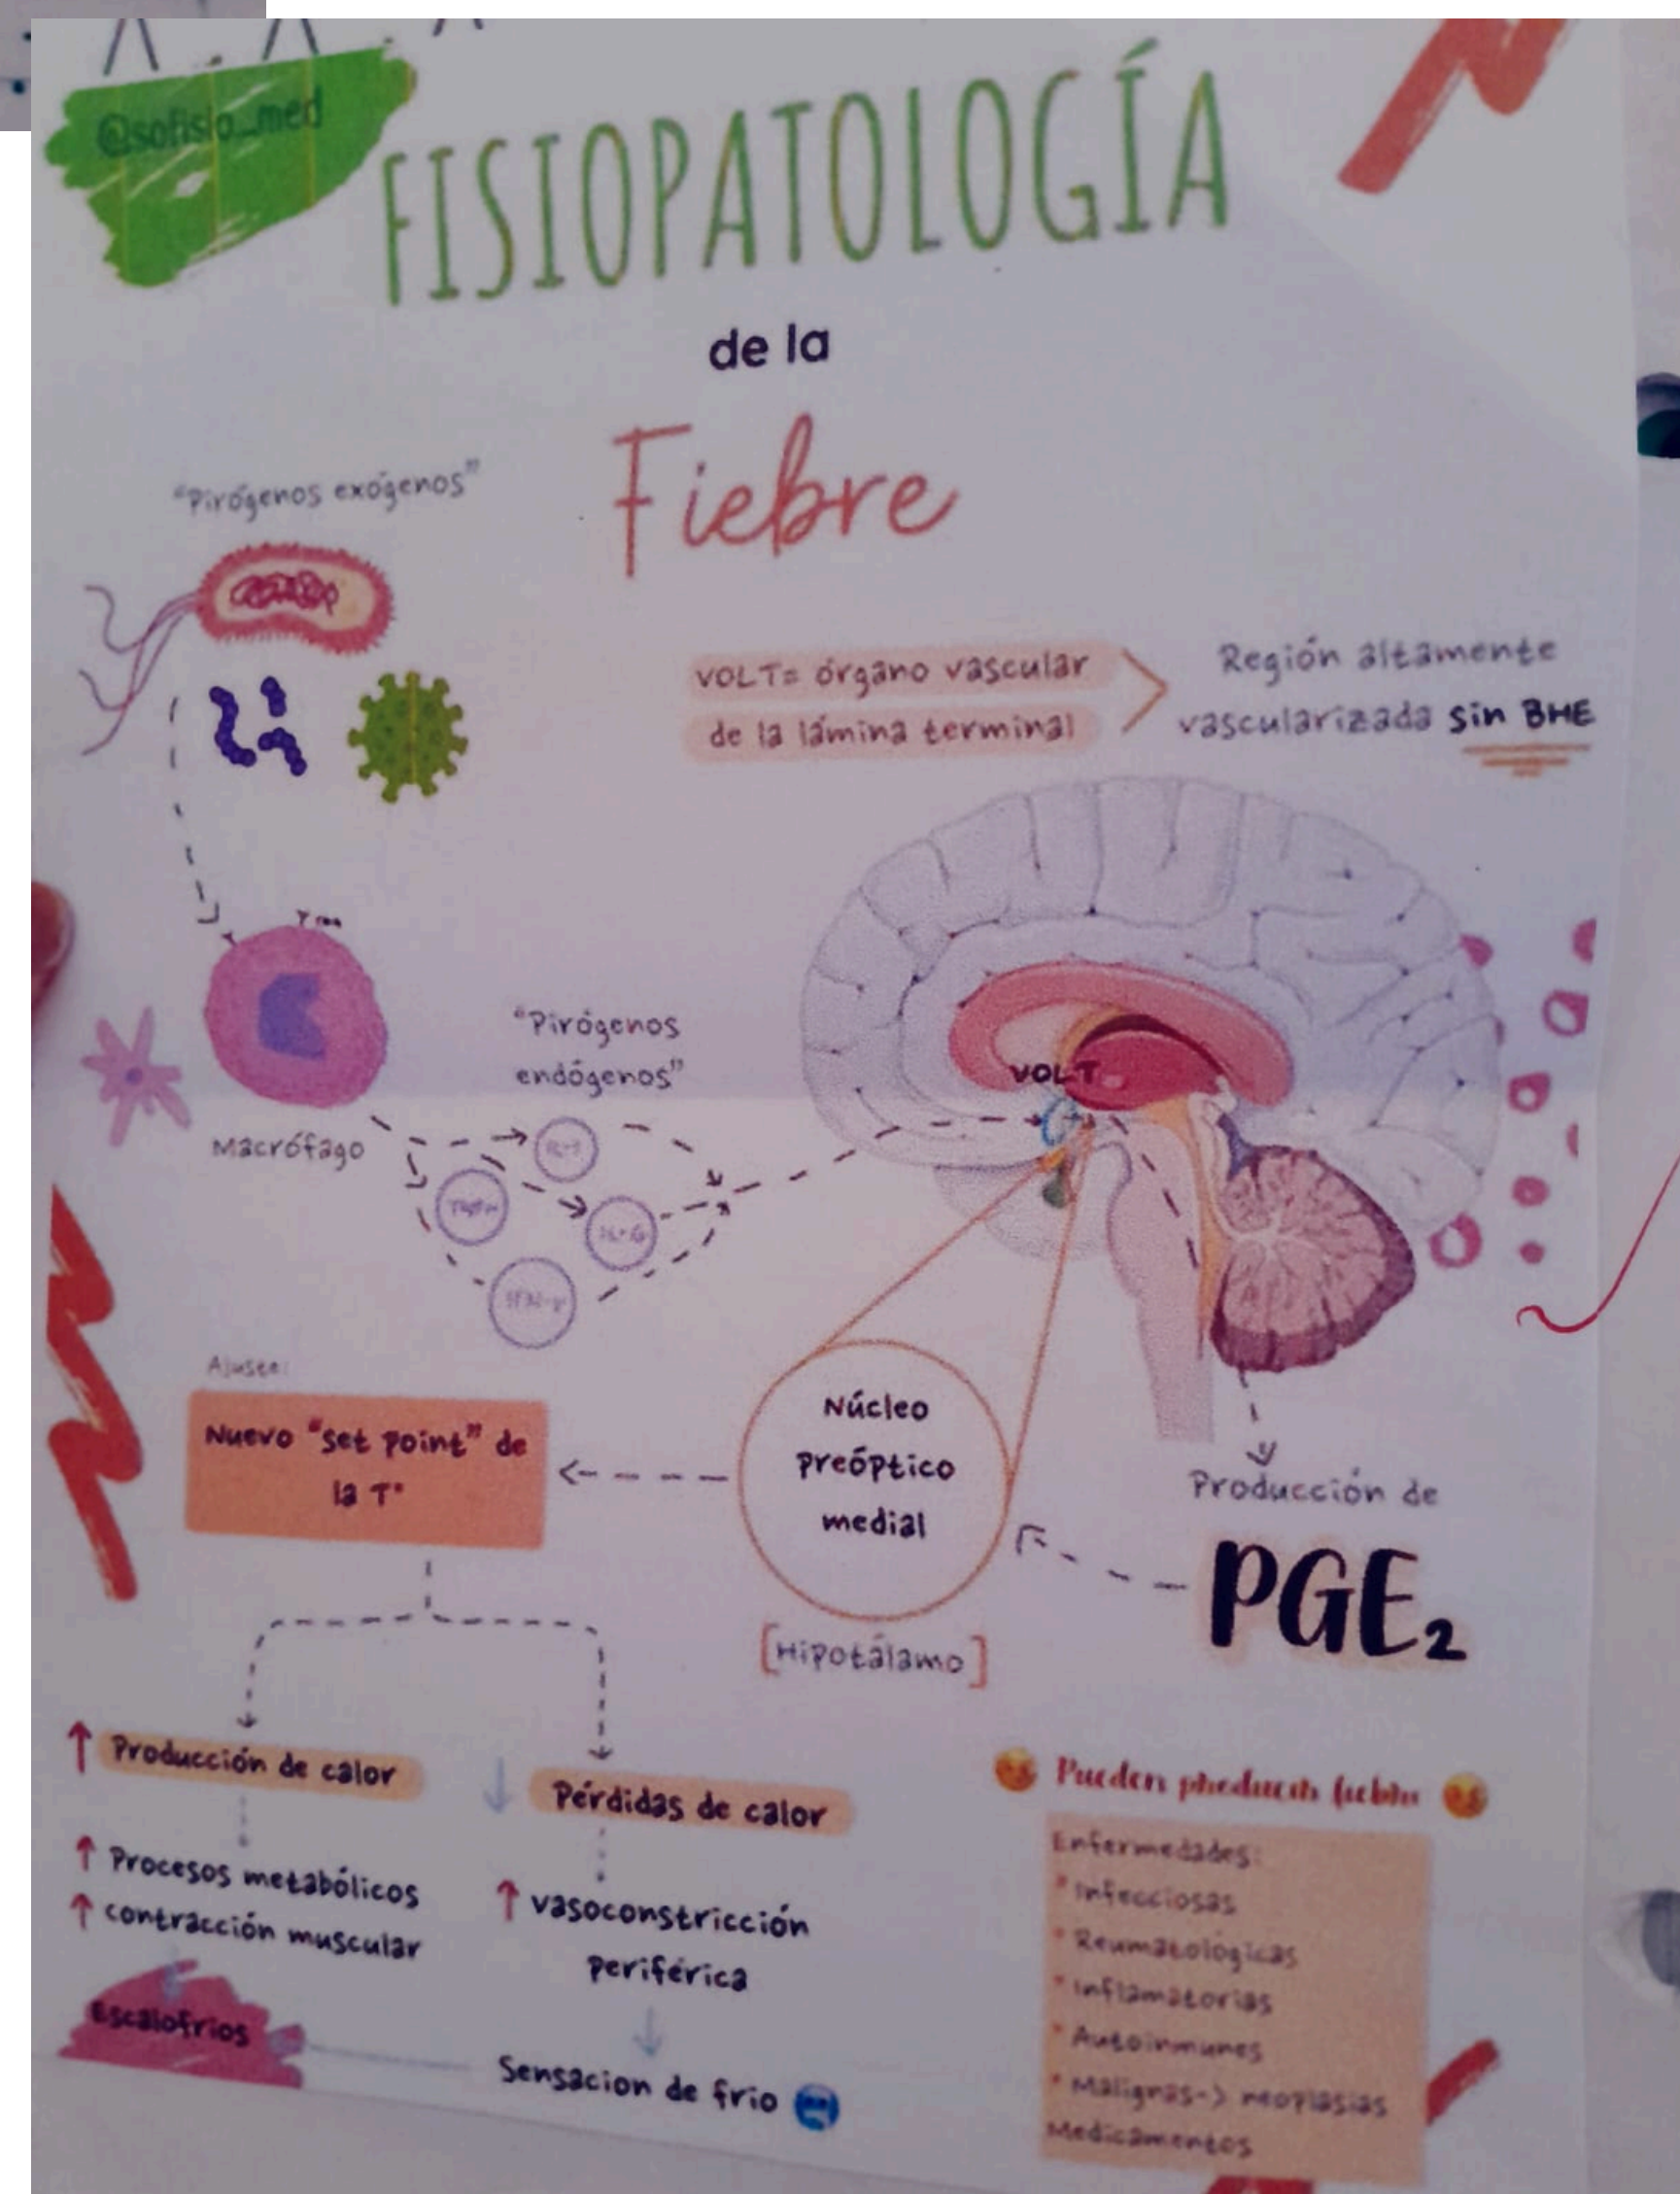 @sofisio_med
FISIOPATOLOGÍA
de la
Fiebre
"Pirógenos exógenos"
VOLT= órgano vascular
de la lámina terminal
Región altamente
vascularizada sin BHE
"Pirógenos
endógenos"
VOLT
Macrófago
Ajuste:
Nuevo "set point" de
la T°
Núcleo
preóptico
medial
[Hipotálamo]
Producción de
PGE₂
↑ Producción de calor
↓ Pérdidas de calor
↑ Procesos metabólicos
↑ contracción muscular
↑ vasoconstricción
periférica
Escalofrios
Sensacion de frio
Pueden producir fiebre
Enfermedades:
* Infecciosas
* Reumatológicas
* Inflamatorias
* Autoinmunes
* Malignas-> neoplasias
Medicamentos